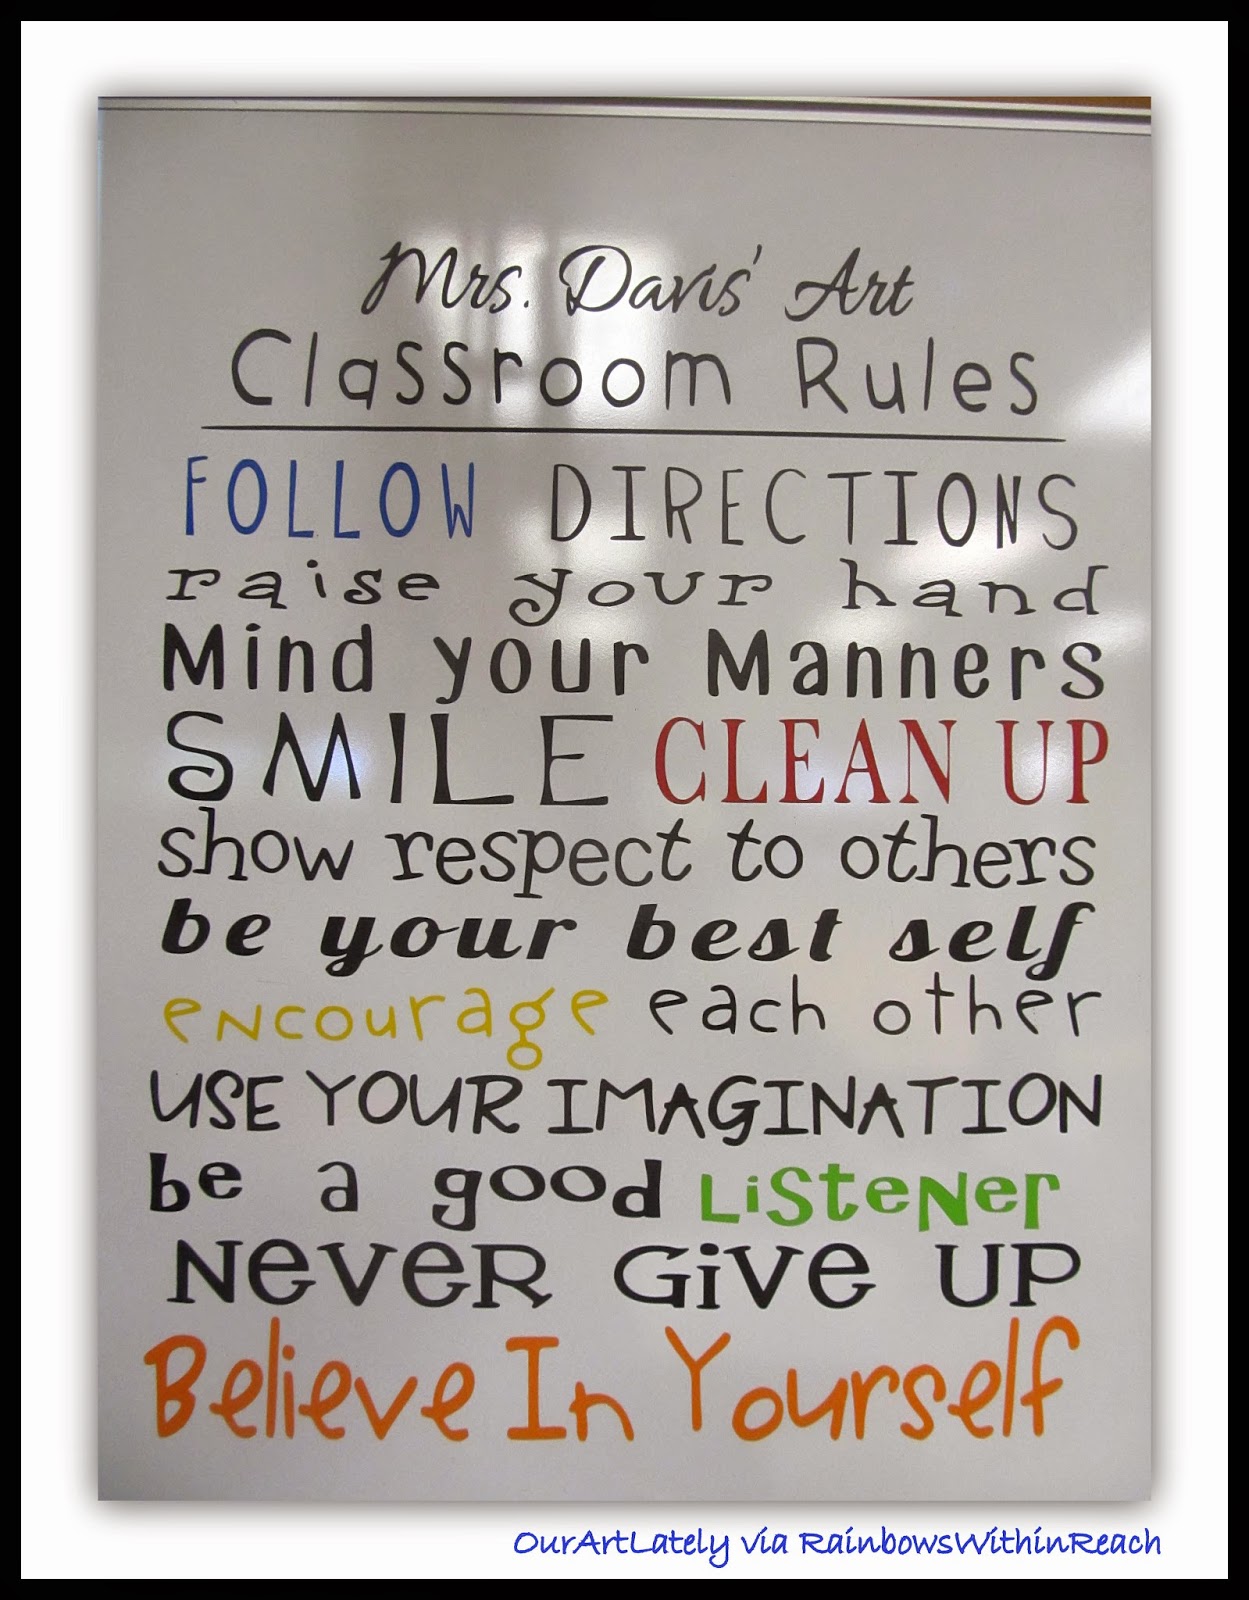 Mrs. Davis' Art
Classroom Rules
FOLLOW DIRECTIONS
raise your hand
Mind your Manners
SMILE CLEAN UP
show respect to others
be your best self
eNcourage each other
USE YOUR IMAGINATION
be a good LiSteNer
NeveR GiVe UP
Believe In Yourself
OurArtLately via RainbowsWithinReach